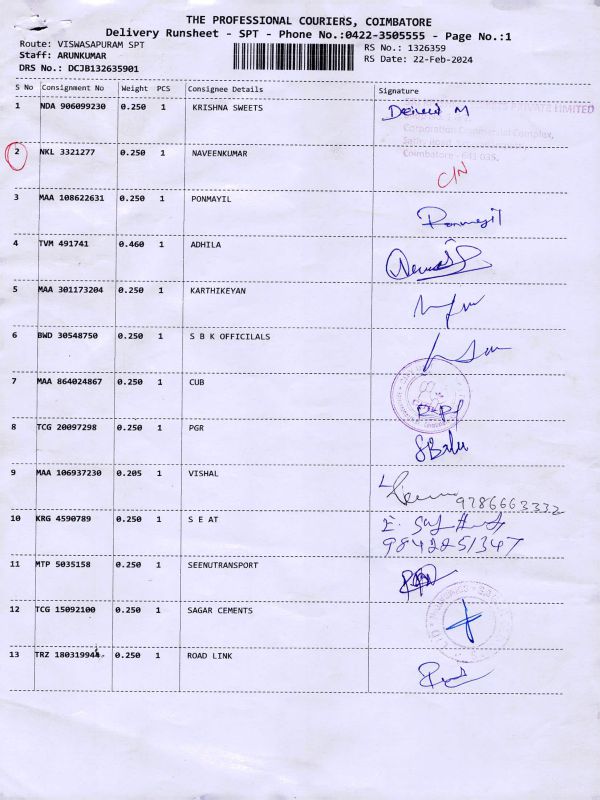 THE PROFESSIONAL COURIERS, COIMBATORE
Delivery Runsheet - SPT - Phone No.:0422-3505555 - Page No.:1
Route: VISWASAPURAM SPT
RS No.: 1326359
Staff: ARUNKUMAR
RS Date: 22-Feb-2024
DRS No.: DCJB132635901
S No Consignment No Weight PCS Consignee Details Signature
1 NDA 906099230 0.250 1 KRISHNA SWEETS
PRIVATE LIMITED
Corporation Commercial Complex,
Coimbatore - 641 035.
2 NKL 3321277 0.250 1 NAVEENKUMAR C/N
3 MAA 108622631 0.250 1 PONMAYIL Ponmayil
4 TVM 491741 0.460 1 ADHILA
5 MAA 301173204 0.250 1 KARTHIKEYAN
6 BWD 30548750 0.250 1 S B K OFFICILALS
7 MAA 864024867 0.250 1 CUB
8 TCG 20097298 0.250 1 PGR S Balu
9 MAA 106937230 0.205 1 VISHAL 9786663332
10 KRG 4590789 0.250 1 S E AT
9842251347
11 MTP 5035158 0.250 1 SEENUTRANSPORT
12 TCG 15092100 0.250 1 SAGAR CEMENTS
13 TRZ 180319944 0.250 1 ROAD LINK